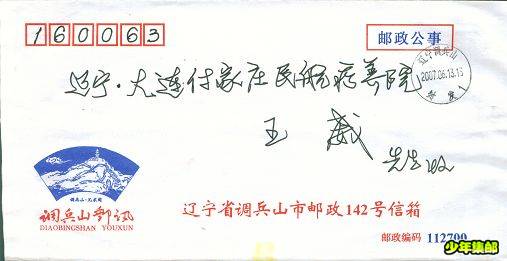 160063
邮政公事
辽宁调兵山
2007.06.13.15
辽宁·大连付家庄民航疗养院
王 威
先生收
调兵山·兀术街
调兵山邮讯
DIAOBINGSHAN YOUXUN
辽宁省调兵山市邮政142号信箱
邮政编码 112700
少年集邮